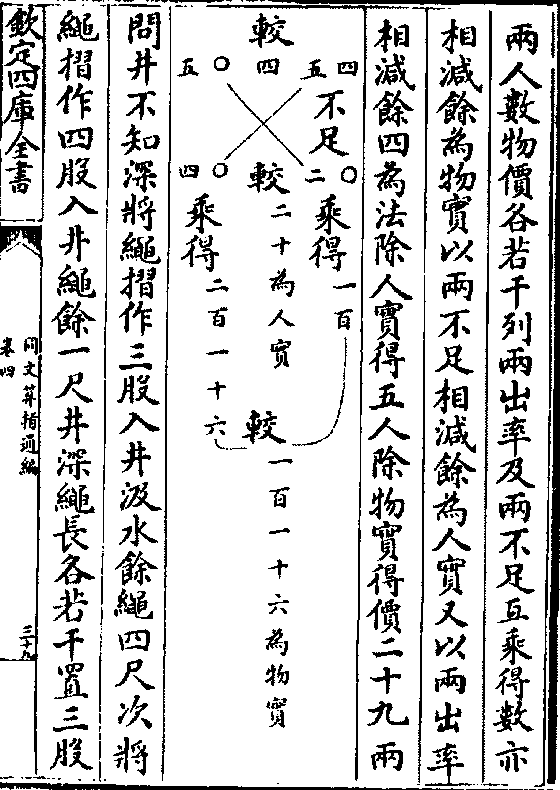 兩人數物價各若干列兩出率及兩不足互乘得數亦
相減餘為物實以兩不足相減餘為人實又以兩出率
相減餘四為法除人實得五人除物實得價二十九兩
五四 不足 二〇 乘得 一百
較 四 較 二十為人實 較 一百一十六為物實
五〇 四〇 乘得 二百一十六
問井不知深將繩摺作三股入井汲水餘繩四尺次將
繩摺作四股入井繩餘一尺井深繩長各若干置三股
欽定四庫全書
同文算指通編
卷四